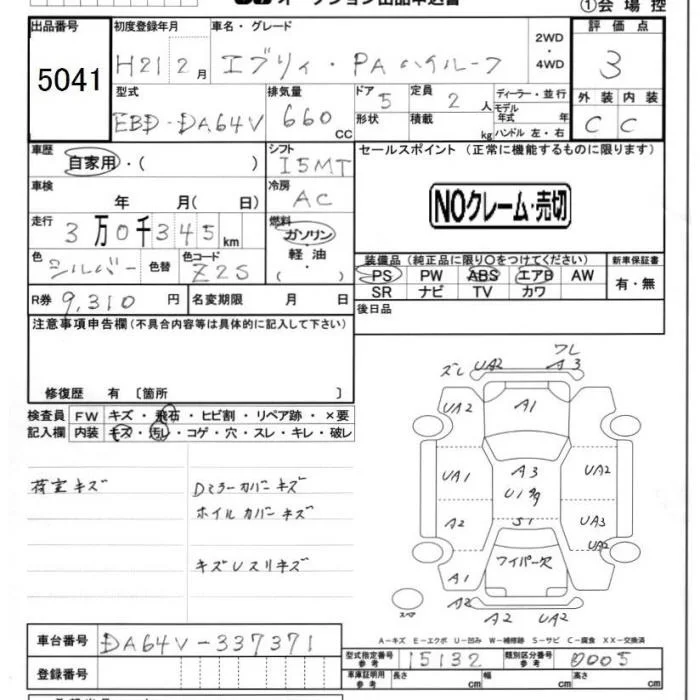 オークション出品申込書
①会場控
出品番号
5041
初度登録年月
H21 2月
車名・グレード
エブリィ・PA ハイルーフ
2WD
・4WD
評価点
3
型式
EBD-DA64V
排気量
660cc
ドア 5
形状
定員 2人
積載 kg
ディーラー・並行
モデル年式 年
ハンドル 左・右
外装 内装
C C
車歴
自家用・( )
シフト
I5MT
セールスポイント (正常に機能するものに限ります)
NOクレーム・売切
車検
年 月( 日)
冷房
AC
走行
3万0千345km
燃料
ガソリン
軽油
・( )
色
シルバー
色替
色コード
Z2S
装備品(純正品に限り○をつけてください)
PS PW ABS エアB AW
SR ナビ TV カワ
新車保証書
有・無
R券 9,310円
名変期限 月 日
後日品
注意事項申告欄(不具合内容等は具体的に記入して下さい)
修復歴 有 〔箇所 〕
検査員記入欄
FW キズ・飛石・ヒビ割・リペア跡・×要
内装 キズ・汚レ・コゲ・穴・スレ・キレ・破レ
荷室キズ
Dミラーカバーキズ
ホイルカバーキズ
キズUスリキズ
ズレ UA2
ワレ
A3
UA2
A1
UA1
A3
U1多
UA2
A2
S1
UA3
UA2
ワイパー欠
A1
A2
A2
UA2
スペア
A-キズ E-エクボ U-凹み W-補修跡 S-サビ C-腐食 XX-交換済
車台番号
DA64V-337371
登録番号
型式指定番号
参考
15132
類別区分番号
参考
0005
車庫証明用
参考
長さ cm
幅 cm
高さ cm